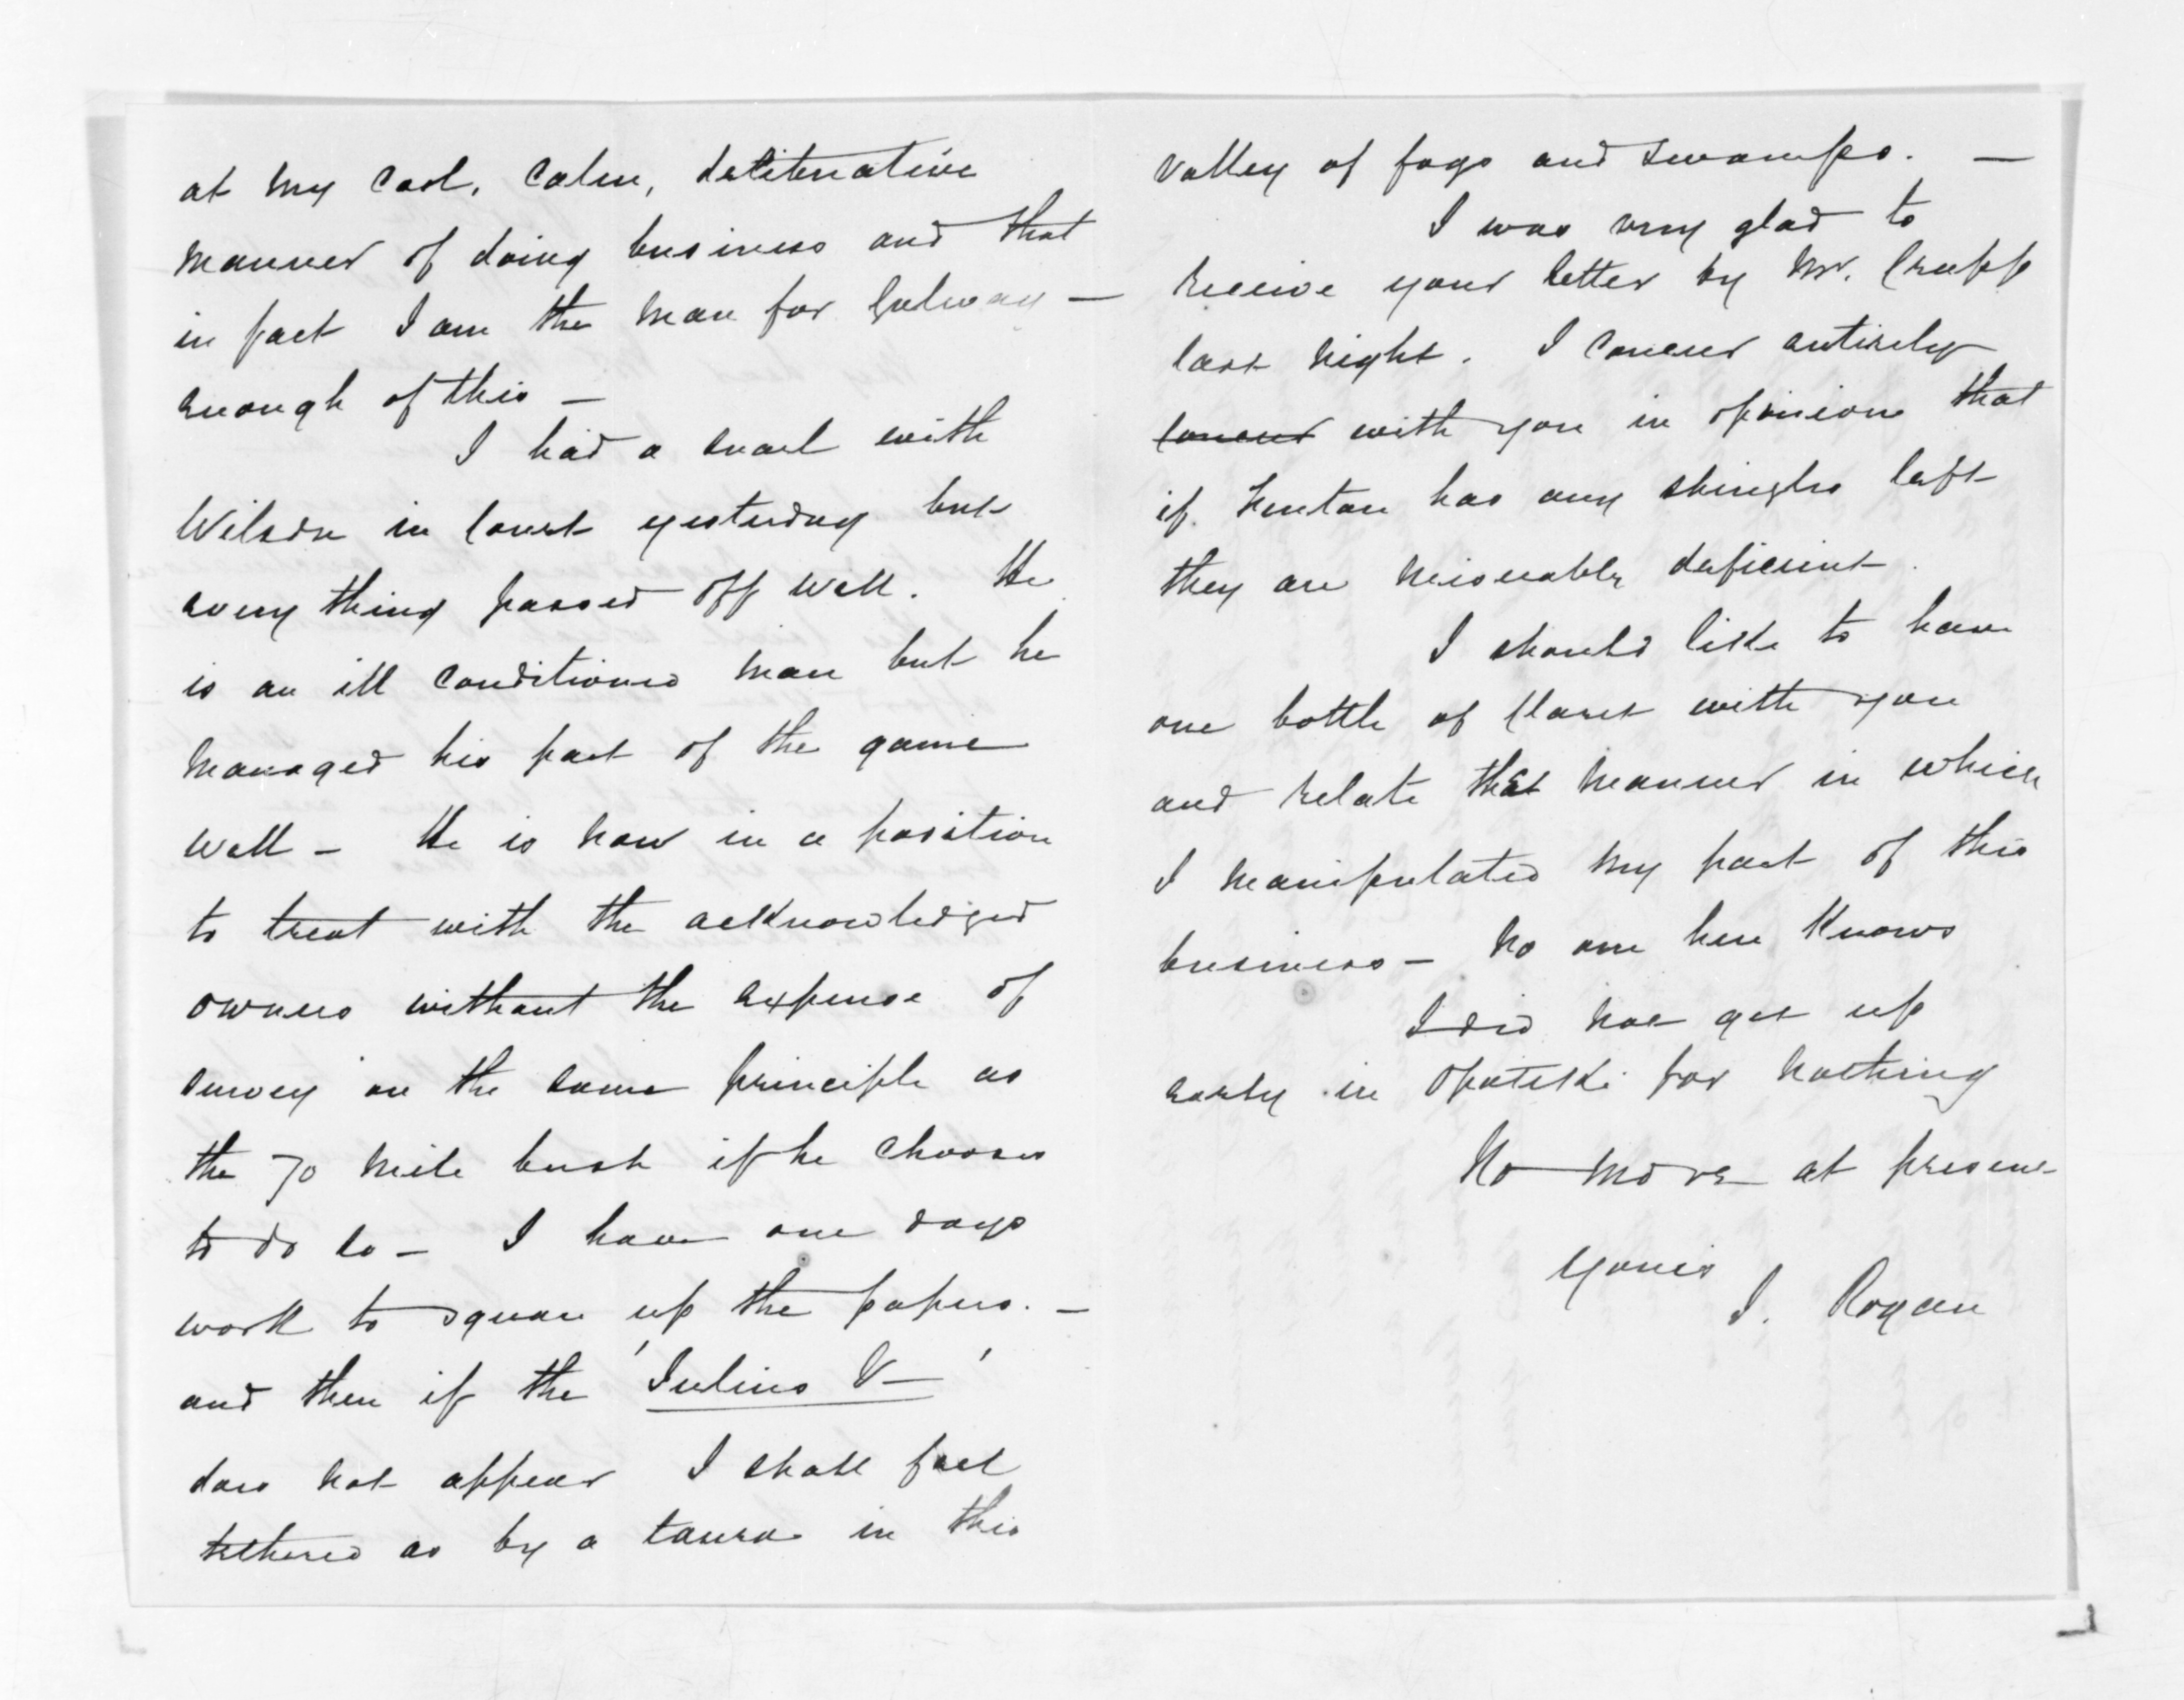 at my cool, calm, deliberative
manner of doing business and that
in fact I am the man for Galway —
enough of this —
I had a snarl with
Wilson in Court yesterday but
every thing passed off well. He
is an ill conditioned man but he
managed his part of the game
well — He is now in a position
to treat with the acknowledged
owners without the expense of
survey on the same principle as
the 70 mile bush if he chooses
to do so — I have one days
work to square up the papers. —
and then if the 'Julius V—'
does not appear I shall feel
tethered as by a taura in this
valley of fogs and swamps. —
I was very glad to
receive your letter by Mr. Crapp
last night. I concur entirely
concur with you in opinion that
if Fenton has any shingles left
they are miserably deficient.
I should like to have
one bottle of Claret with you
and relate that manner in which
I manipulated my part of this
business — No one here knows
I did not get up
early in Opotiki for nothing
No more at present
Yours
J. Rogan